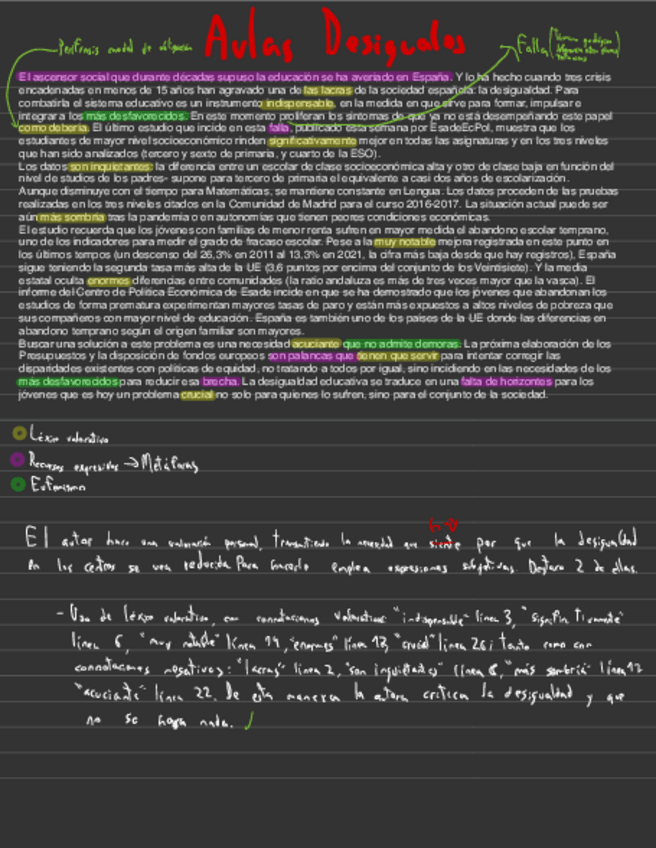 Perífrasis modal de obligación
Aulas Desiguales
Falla (término geológico
El ascensor social que durante décadas supuso la educación se ha averiado en España. Y lo ha hecho cuando tres crisis
encadenadas en menos de 15 años han agravado una de las lacras de la sociedad española: la desigualdad. Para
combatirla el sistema educativo es un instrumento indispensable, en la medida en que sirve para formar, impulsar e
integrar a los más desfavorecidos. En este momento proliferan los síntomas de que ya no está desempeñando este papel
como debería. El último estudio que incide en esta falla, publicado esta semana por EsadeEcPol, muestra que los
estudiantes de mayor nivel socioeconómico rinden significativamente mejor en todas las asignaturas y en los tres niveles
que han sido analizados (tercero y sexto de primaria, y cuarto de la ESO).
Los datos son inquietantes: la diferencia entre un escolar de clase socioeconómica alta y otro de clase baja en función del
nivel de estudios de los padres- supone para tercero de primaria el equivalente a casi dos años de escolarización.
Aunque disminuye con el tiempo para Matemáticas, se mantiene constante en Lengua. Los datos proceden de las pruebas
realizadas en los tres niveles citados en la Comunidad de Madrid para el curso 2016-2017. La situación actual puede ser
aún más sombría tras la pandemia o en autonomías que tienen peores condiciones económicas.
El estudio recuerda que los jóvenes con familias de menor renta sufren en mayor medida el abandono escolar temprano,
uno de los indicadores para medir el grado de fracaso escolar. Pese a la muy notable mejora registrada en este punto en
los últimos tiempos (un descenso del 26,3% en 2011 al 13,3% en 2021, la cifra más baja desde que hay registros), España
sigue teniendo la segunda tasa más alta de la UE (3,6 puntos por encima del conjunto de los Veintisiete). Y la media
estatal oculta enormes diferencias entre comunidades (la ratio andaluza es más de tres veces mayor que la vasca). El
informe del Centro de Política Económica de Esade incide en que se ha demostrado que los jóvenes que abandonan los
estudios de forma prematura experimentan mayores tasas de paro y están más expuestos a altos niveles de pobreza que
sus compañeros con mayor nivel de educación. España es también uno de los países de la UE donde las diferencias en
abandono temprano según el origen familiar son mayores.
Buscar una solución a este problema es una necesidad acuciante que no admite demoras. La próxima elaboración de los
Presupuestos y la disposición de fondos europeos son palancas que tienen que servir para intentar corregir las
disparidades existentes con políticas de equidad, no tratando a todos por igual, sino incidiendo en las necesidades de los
más desfavorecidos para reducir esa brecha. La desigualdad educativa se traduce en una falta de horizontes para los
jóvenes que es hoy un problema crucial no solo para quienes lo sufren, sino para el conjunto de la sociedad.
Léxico valorativo
Recursos expresivos → Metáforas
Eufemismo
El autor hace una valoración personal, transmitiendo la necesidad que siente por que la desigualdad
en los centros se vea reducida. Para hacerlo emplea expresiones subjetivas. Destaco 2 de ellas.
- Uso de léxico valorativo, con connotaciones valorativas: "indispensable" línea 3, "significativamente"
línea 6, "muy notable" línea 14, "enormes" línea 17, "crucial" línea 26; tanto como con
connotaciones negativas: "lacras" línea 2, "son inquietantes" línea 8, "más sombría" línea 12
"acuciante" línea 22. De esta manera la autora critica la desigualdad y que
no se haga nada.